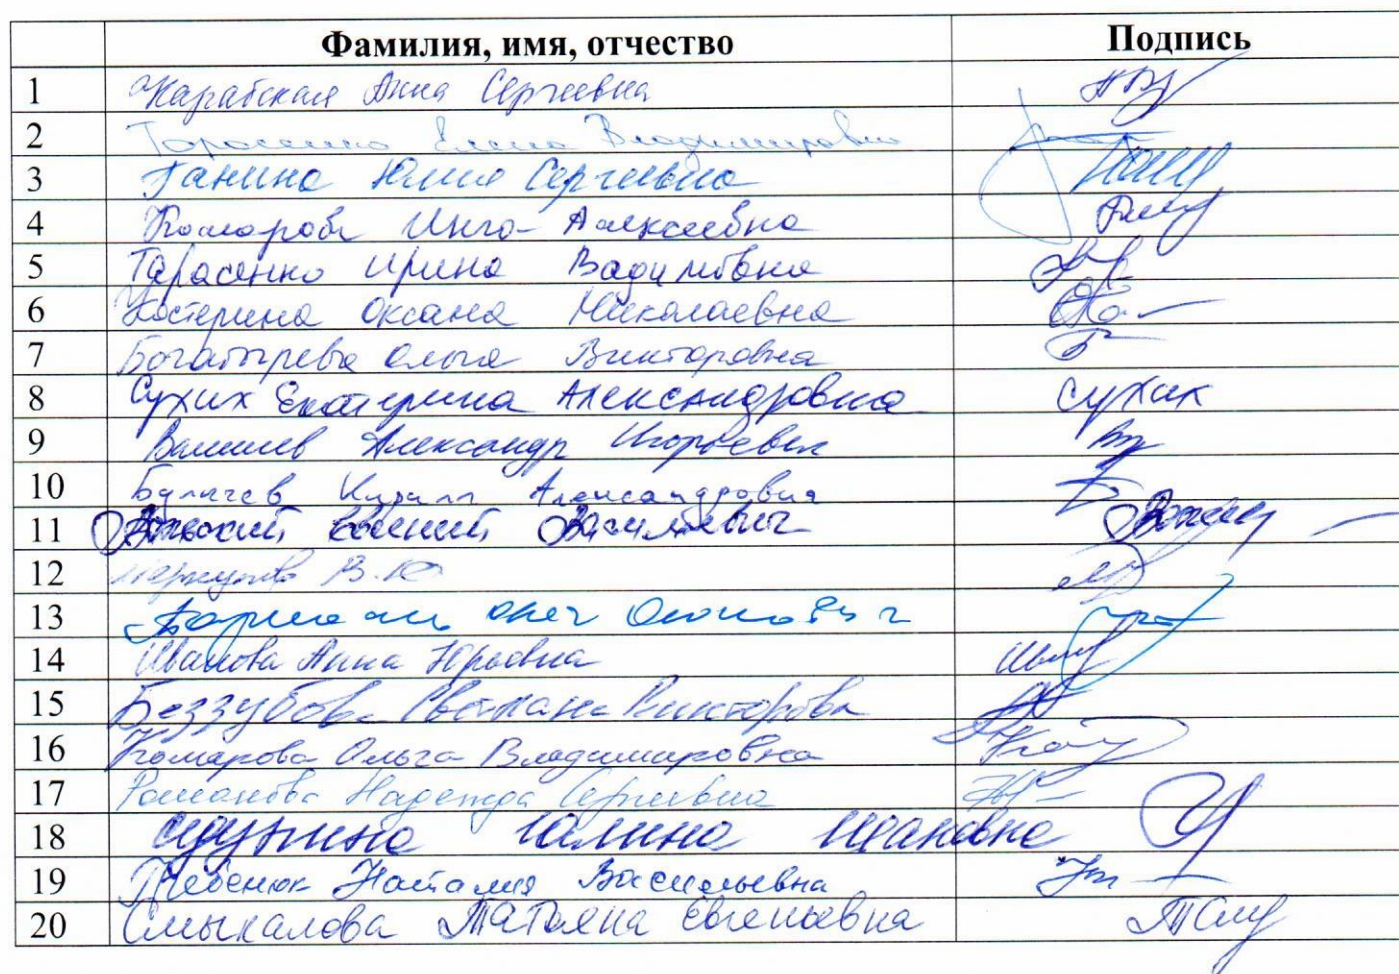 Фамилия, имя, отчество Подпись
1 Анна Сергеевна
2 Тарасенко Елена Владимировна
3 Ганина Юлия Сергеевна
4 Комарова Инга Алексеевна
5 Тарасенко Ирина Вадимовна
6 Костерина Оксана Николаевна
7 Богатырева Ольга Викторовна
8 Сухих Екатерина Александровна Сухих
9 Александр Игоревич
10 Булычев Кирилл Александрович
11 Евгений Васильевич
12 В.Ю
13 Олег
14 Иванова Анна Юрьевна
15 Беззубова Светлана Викторовна
16 Комарова Ольга Владимировна
17 Романова Надежда Сергеевна
18 Галина Ивановна
19 Наталия Васильевна
20 Смыкалова Татьяна Евгеньевна